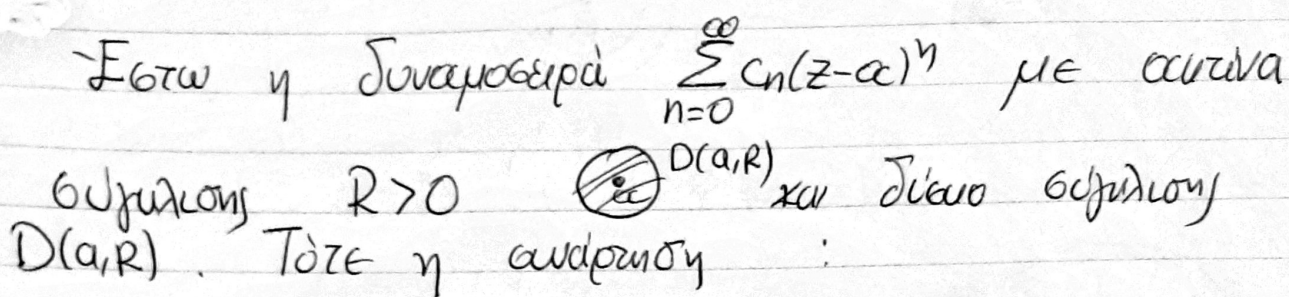 Έστω η δυναμοσειρά \sum_{n=0}^{\infty} c_n(z-α)^n με ακτίνα
σύγκλισης R>0 α D(a,R) και δίσκο σύγκλισης
D(a,R). Τότε η συνάρτηση :